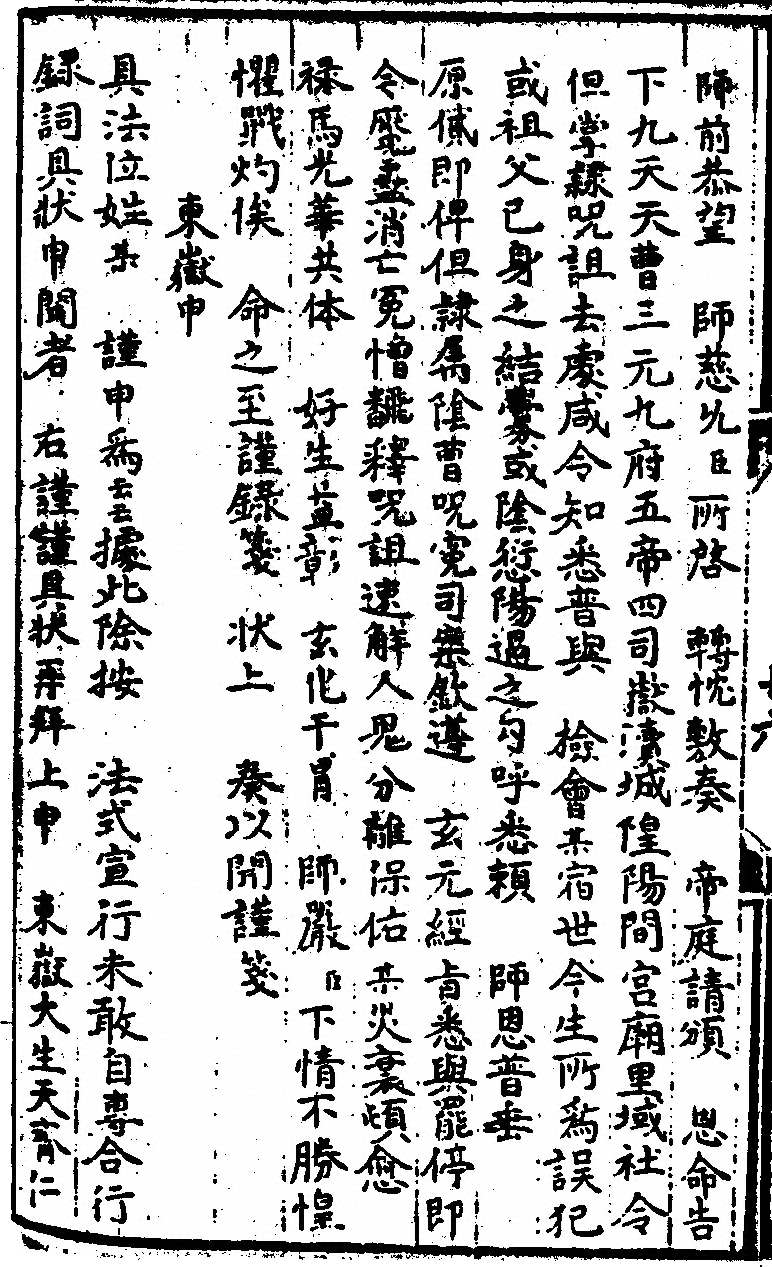 師前恭望　師慈允臣所啓　轉忱敷奏　帝庭請頒　恩命告
下九天天曹三元九府五帝四司嶽瀆城隍陽間宮廟里域社令
但掌隷呪詛去處咸令知悉普與　撿會某宿世今生所爲誤犯
或祖父已身之結釁或陰愆陽過之勾呼悉賴　師恩普垂
原僽即俾但隷属陰曹呪寃司案欽遵　玄元經旨悉與罷停即
令魘蠱消亡冤憎飜釋呪詛速解人鬼分離保佑某災衰頓愈
禄馬光華共体　好生益彰　玄化干冐　師嚴臣下情不勝惶
懼戰灼俟　命之至謹錄箋　狀上　奏以聞謹箋
東嶽申
具法位姓某　謹申爲云云據此除按　法式宣行未敢自專合行
録詞具狀申聞者　右謹謹具狀再拜上申　東嶽大生天齊仁